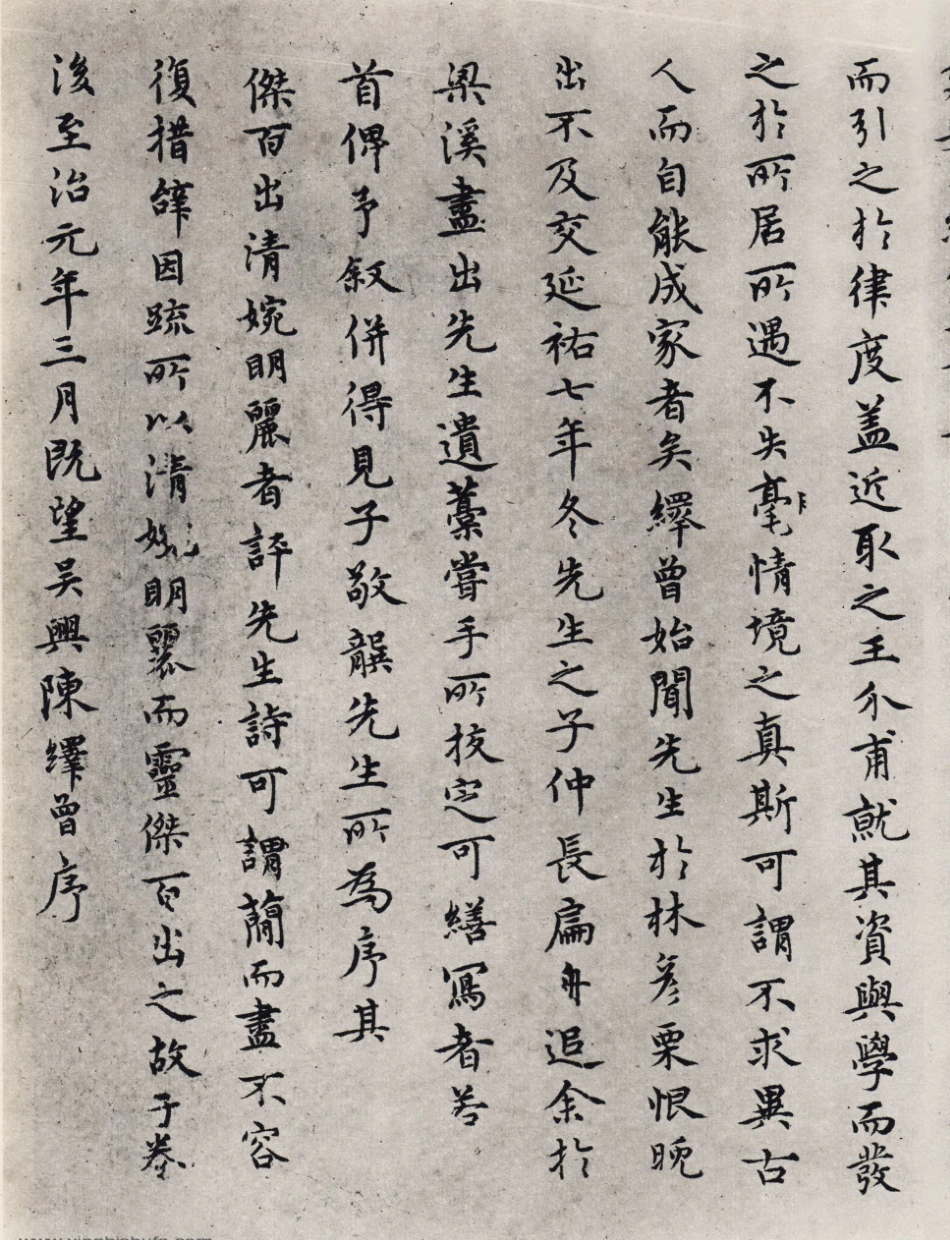 而引之於律度盖近取之王介甫就其資與學而發
之於所居所遇不失毫情境之真斯可謂不求異古
人而自能成家者矣繹曾始聞先生於林彦栗恨晚
出不及交延祐七年冬先生之子仲長扁舟追余於
梁溪盡出先生遺藁嘗手所挍定可繕寫者若
首俾予叙併得見子敬龔先生所為序其
傑百出清婉明麗者評先生詩可謂蕳而盡不容
復措辤因疏所以清婉明麗而靈傑百出之故于卷
後至治元年三月既望吴興陳繹曾序